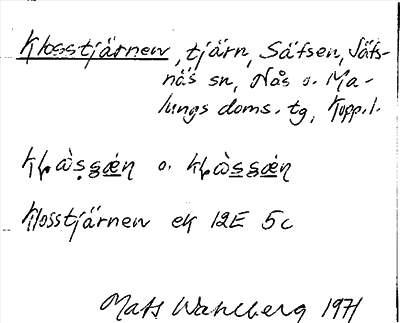 Klosstjärnen, tjärn, Säfsen, Säfs-
näs sn, Nås o. Ma-
lungs doms. tg, Kopp. l.
o.
Klosstjärnen ek 12E 5c
Mats Wahlberg 1971